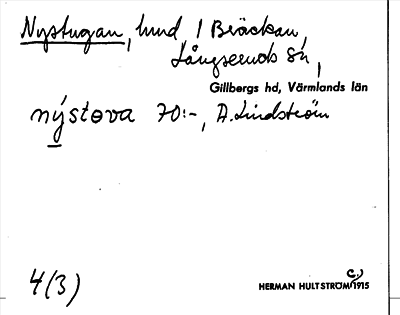 Nystugan, hmd, 1 Bräckan,
Långseruds sn,
Gillbergs hd, Värmlands län
nýstova 70:-, A. Lindström
4(3)
HERMAN HULTSTRÖM (C.) 1915